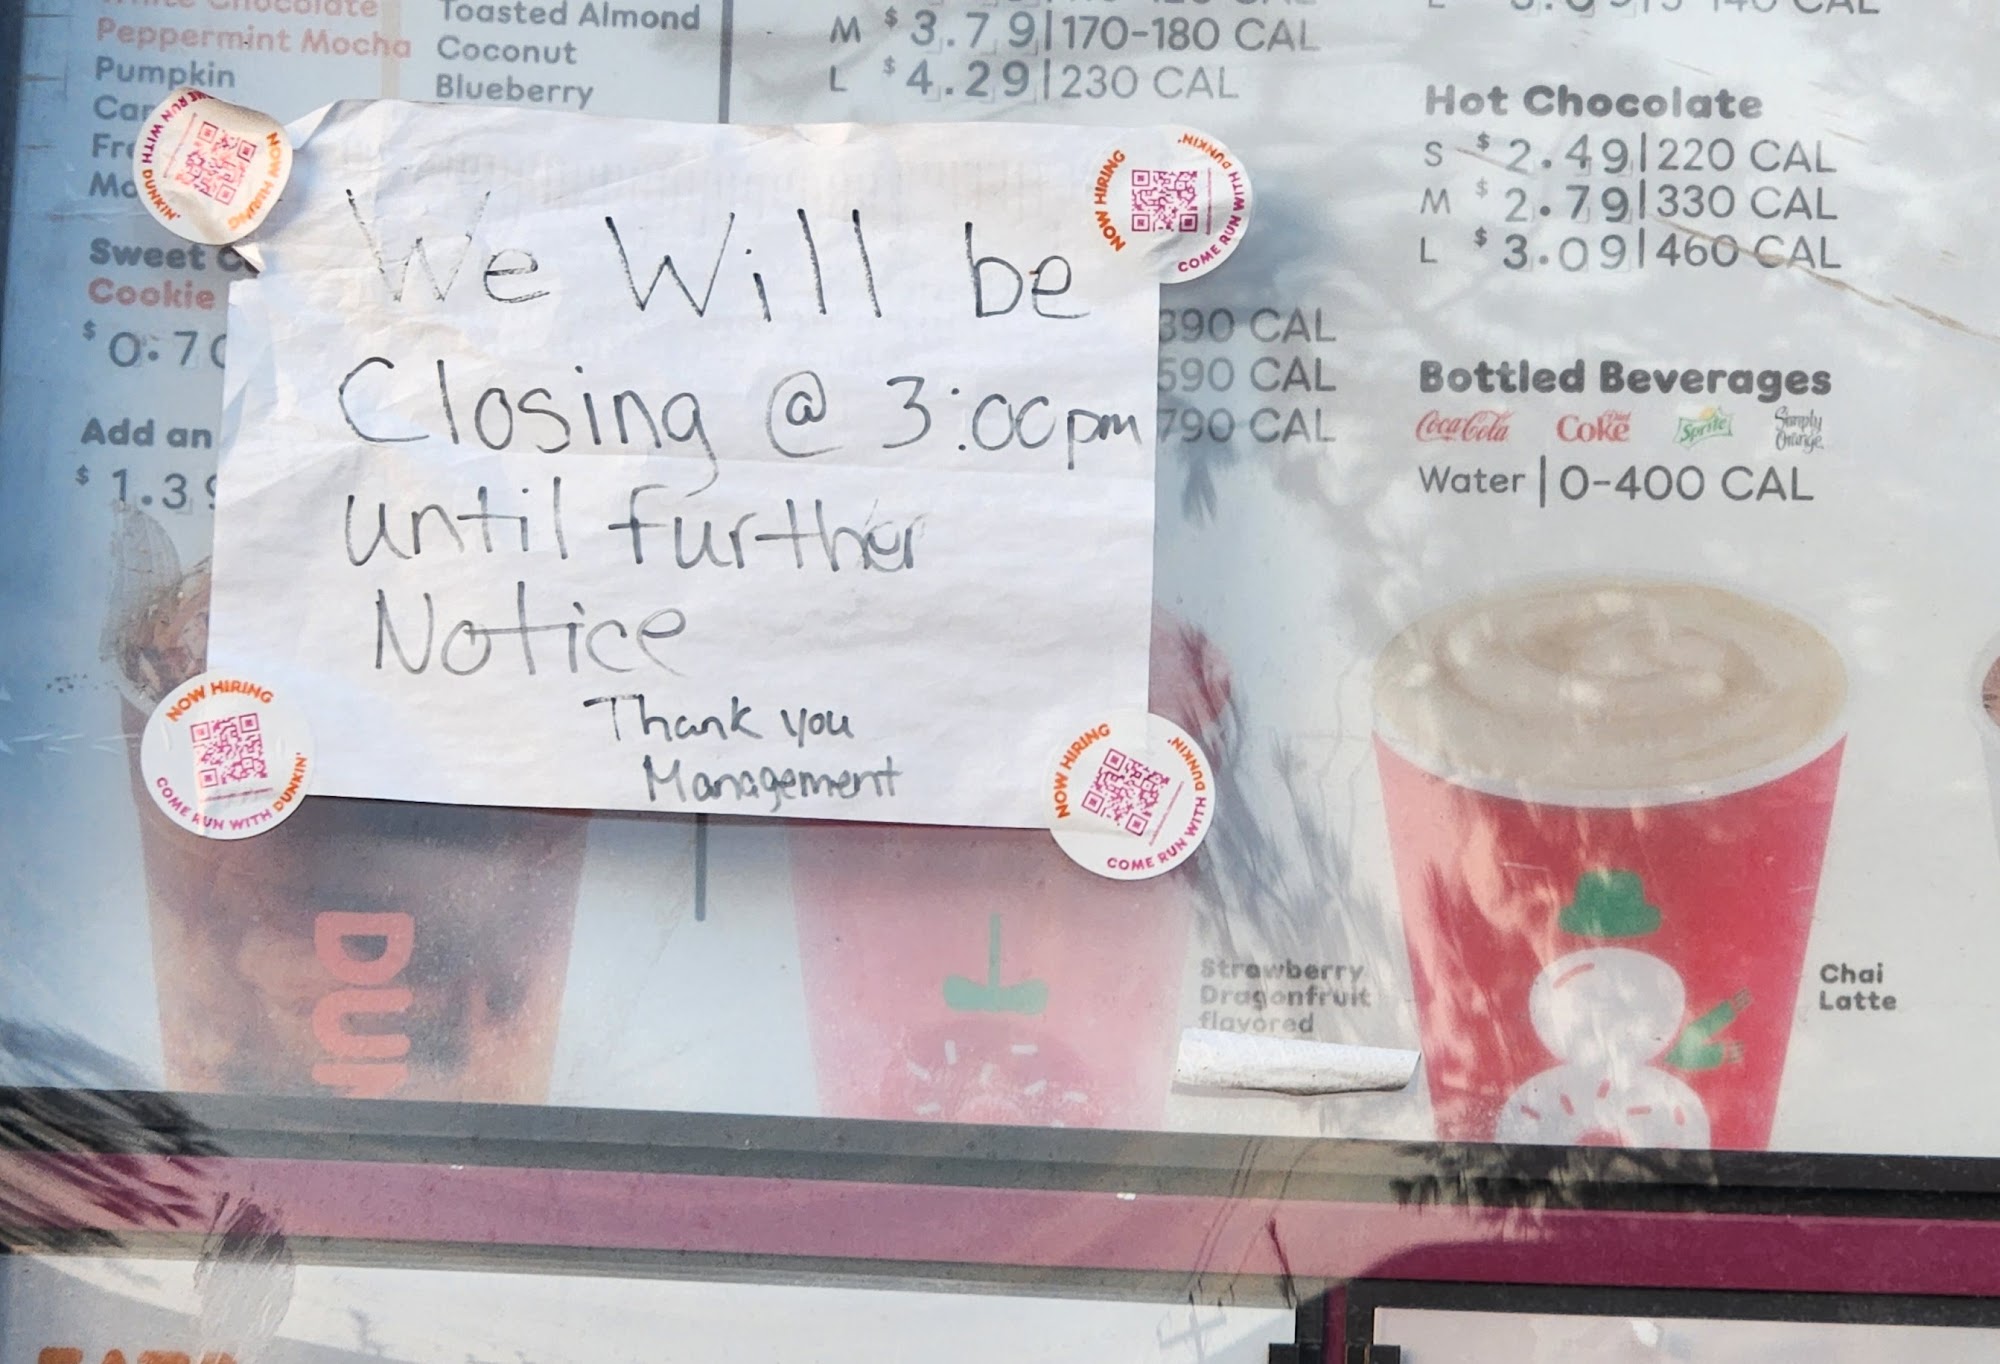 Peppermint Mocha
Pumpkin
Toasted Almond
Coconut
Blueberry
M $3.79|170-180 CAL
L $4.29|230 CAL
Sweet
Cookie
Add an
We Will be
Closing @ 3:00pm
until further
Notice
Thank you
Management
NOW HIRING
COME RUN WITH DUNKIN'
NOW HIRING
COME RUN WITH DUNKIN'
NOW HIRING
COME RUN WITH DUNKIN'
NOW HIRING
COME RUN WITH DUNKIN'
390 CAL
590 CAL
790 CAL
Hot Chocolate
S $2.49|220 CAL
M $2.79|330 CAL
L $3.09|460 CAL
Bottled Beverages
Coca-Cola Diet Coke Sprite Simply Orange
Water|0-400 CAL
Strawberry
Dragonfruit
flavored
Chai
Latte
DUN